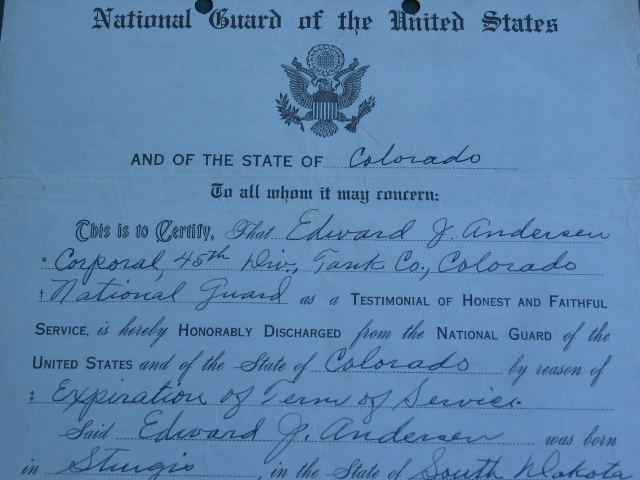 National Guard of the United States
AND OF THE STATE OF Colorado
To all whom it may concern:
This is to Certify, That Edward J. Andersen
* Corporal, 45th Div., Tank Co., Colorado
† National Guard as a TESTIMONIAL OF HONEST AND FAITHFUL
SERVICE, is hereby HONORABLY DISCHARGED from the NATIONAL GUARD of the
UNITED STATES and of the State of Colorado by reason of
‡ Expiration of Term of Service.
Said Edward J. Andersen was born
in Sturgis, in the State of South Dakota